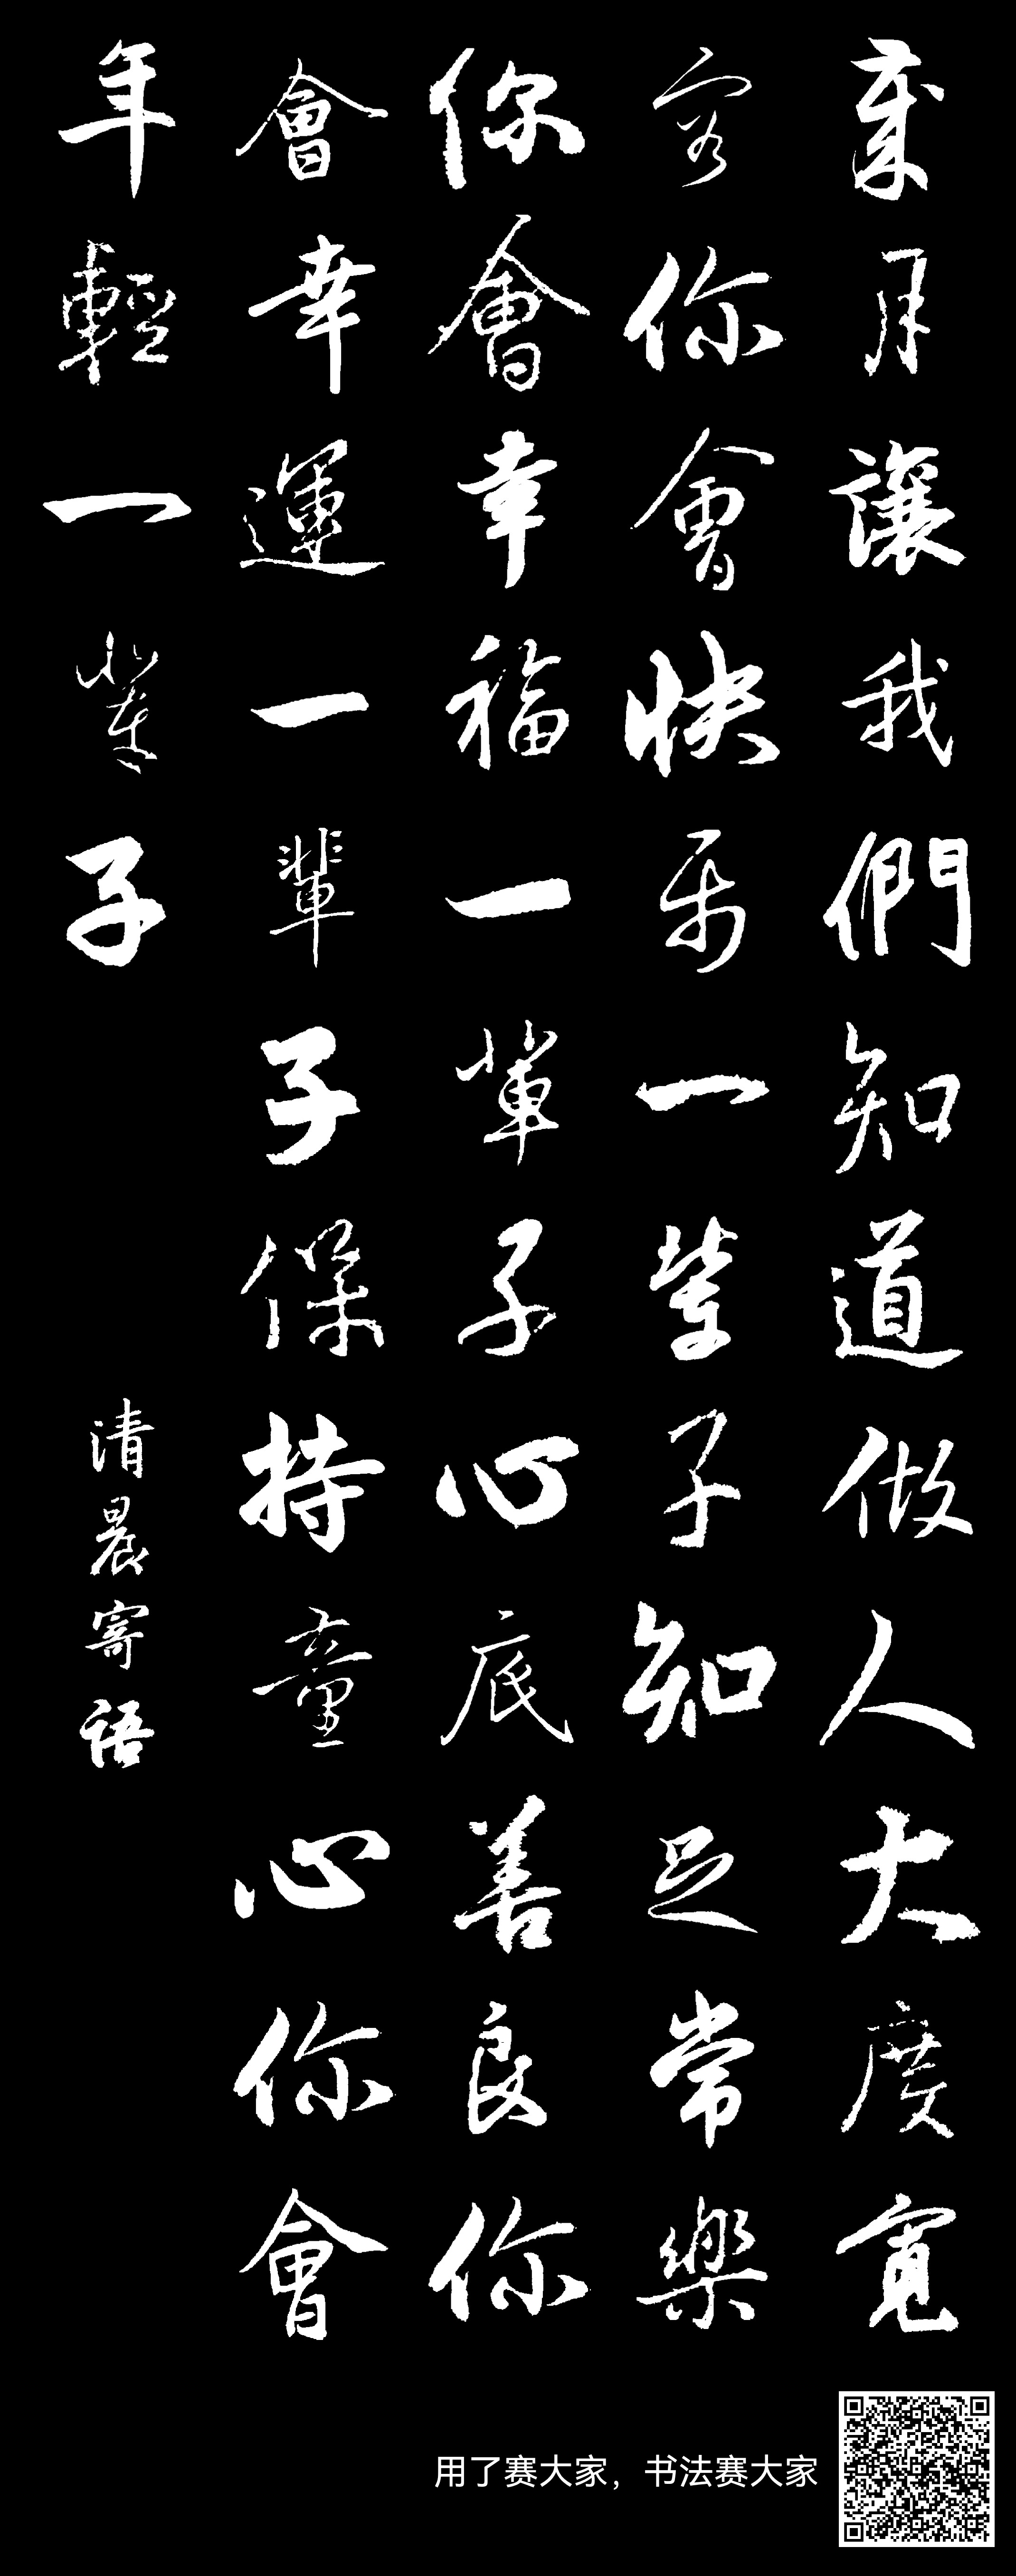 歲月讓我們知道做人大度寬
容你會快乐一輩子知足常樂
你會幸福一輩子心底善良你
會幸運一輩子保持童心你會
年輕一輩子
清晨寄语
用了赛大家，书法赛大家